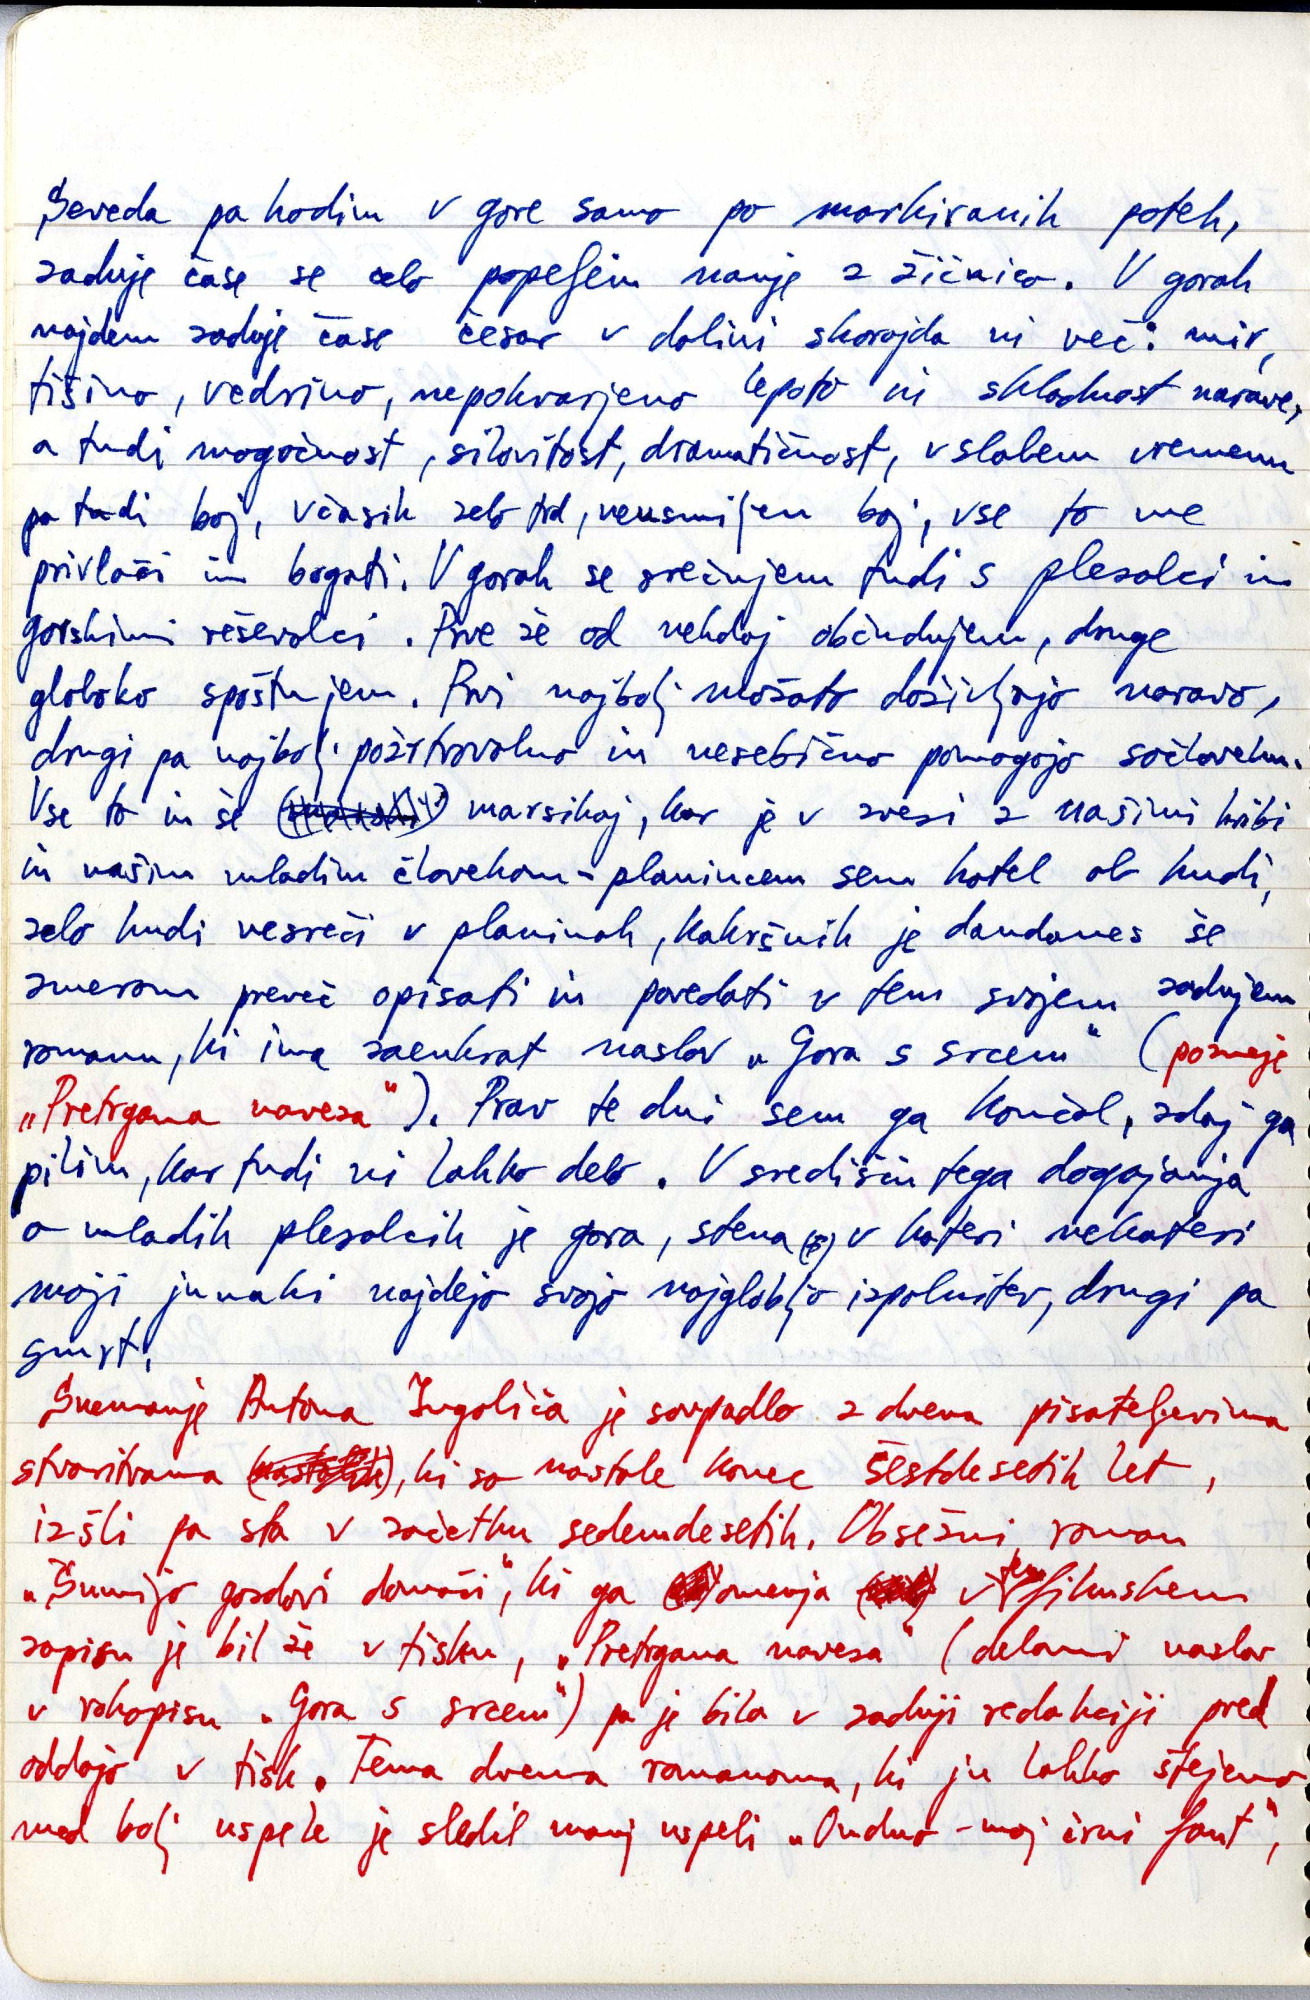 Seveda pa hodim v gore samo po markiranih poteh,
zadnje čase se celo popeljem nanje z žičnico. V gorah
najdem zadnje čase česar v dolini skorajda ni več: mir,
tišino, vedrino, nepokvarjeno lepoto in skladnost narave,
a tudi mogočnost, silovitost, dramatičnost, v slabem vremenu
pa tudi boj, včasih zelo trd, neusmiljen boj, vse to me
privlači in bogati. V gorah se srečujem tudi s plezalci in
gorskimi reševalci. Prve že od nekdaj občudujem, druge
globoko spoštujem. Prvi najbolj možato doživljajo naravo,
drugi pa najbolj požrtvovalno in nesebično pomagajo sočloveku.
Vse to in še marsikaj, kar je v zvezi z našimi hribi
in našim mladim človekom-planincem sem hotel ob hudi,
zelo hudi nesreči v planinah, kakršnih je dandanes še
zmerom preveč opisati in povedati v tem svojem zadnjem
romanu, ki ima zaenkrat naslov „Gora s srcem" (pozneje
„Pretrgana naveza"). Prav te dni sem ga končal, zdaj ga
pilim, kar tudi ni lahko delo. V središču tega dogajanja
o mladih plezalcih je gora, stena v kateri nekateri
moji junaki najdejo svojo najglobljo izpolnitev, drugi pa
smrt.
Snemanje Antona Ingoliča je sovpadlo z dvema pisateljevima
stvaritvama, ki so nastale konec šestdesetih let,
izšli pa sta v začetku sedemdesetih. Obsežni roman
„Šumijo gozdovi domači", ki ga omenja v tem filmskem
zapisu je bil že v tisku, „Pretrgana naveza" (delovni naslov
v rokopisu „Gora s srcem") pa je bila v zadnji redakciji pred
oddajo v tisk. Tema dvema romanoma, ki ju lahko štejemo
med bolj uspele je sledil manj uspeli „Onduo - moj črni fant",